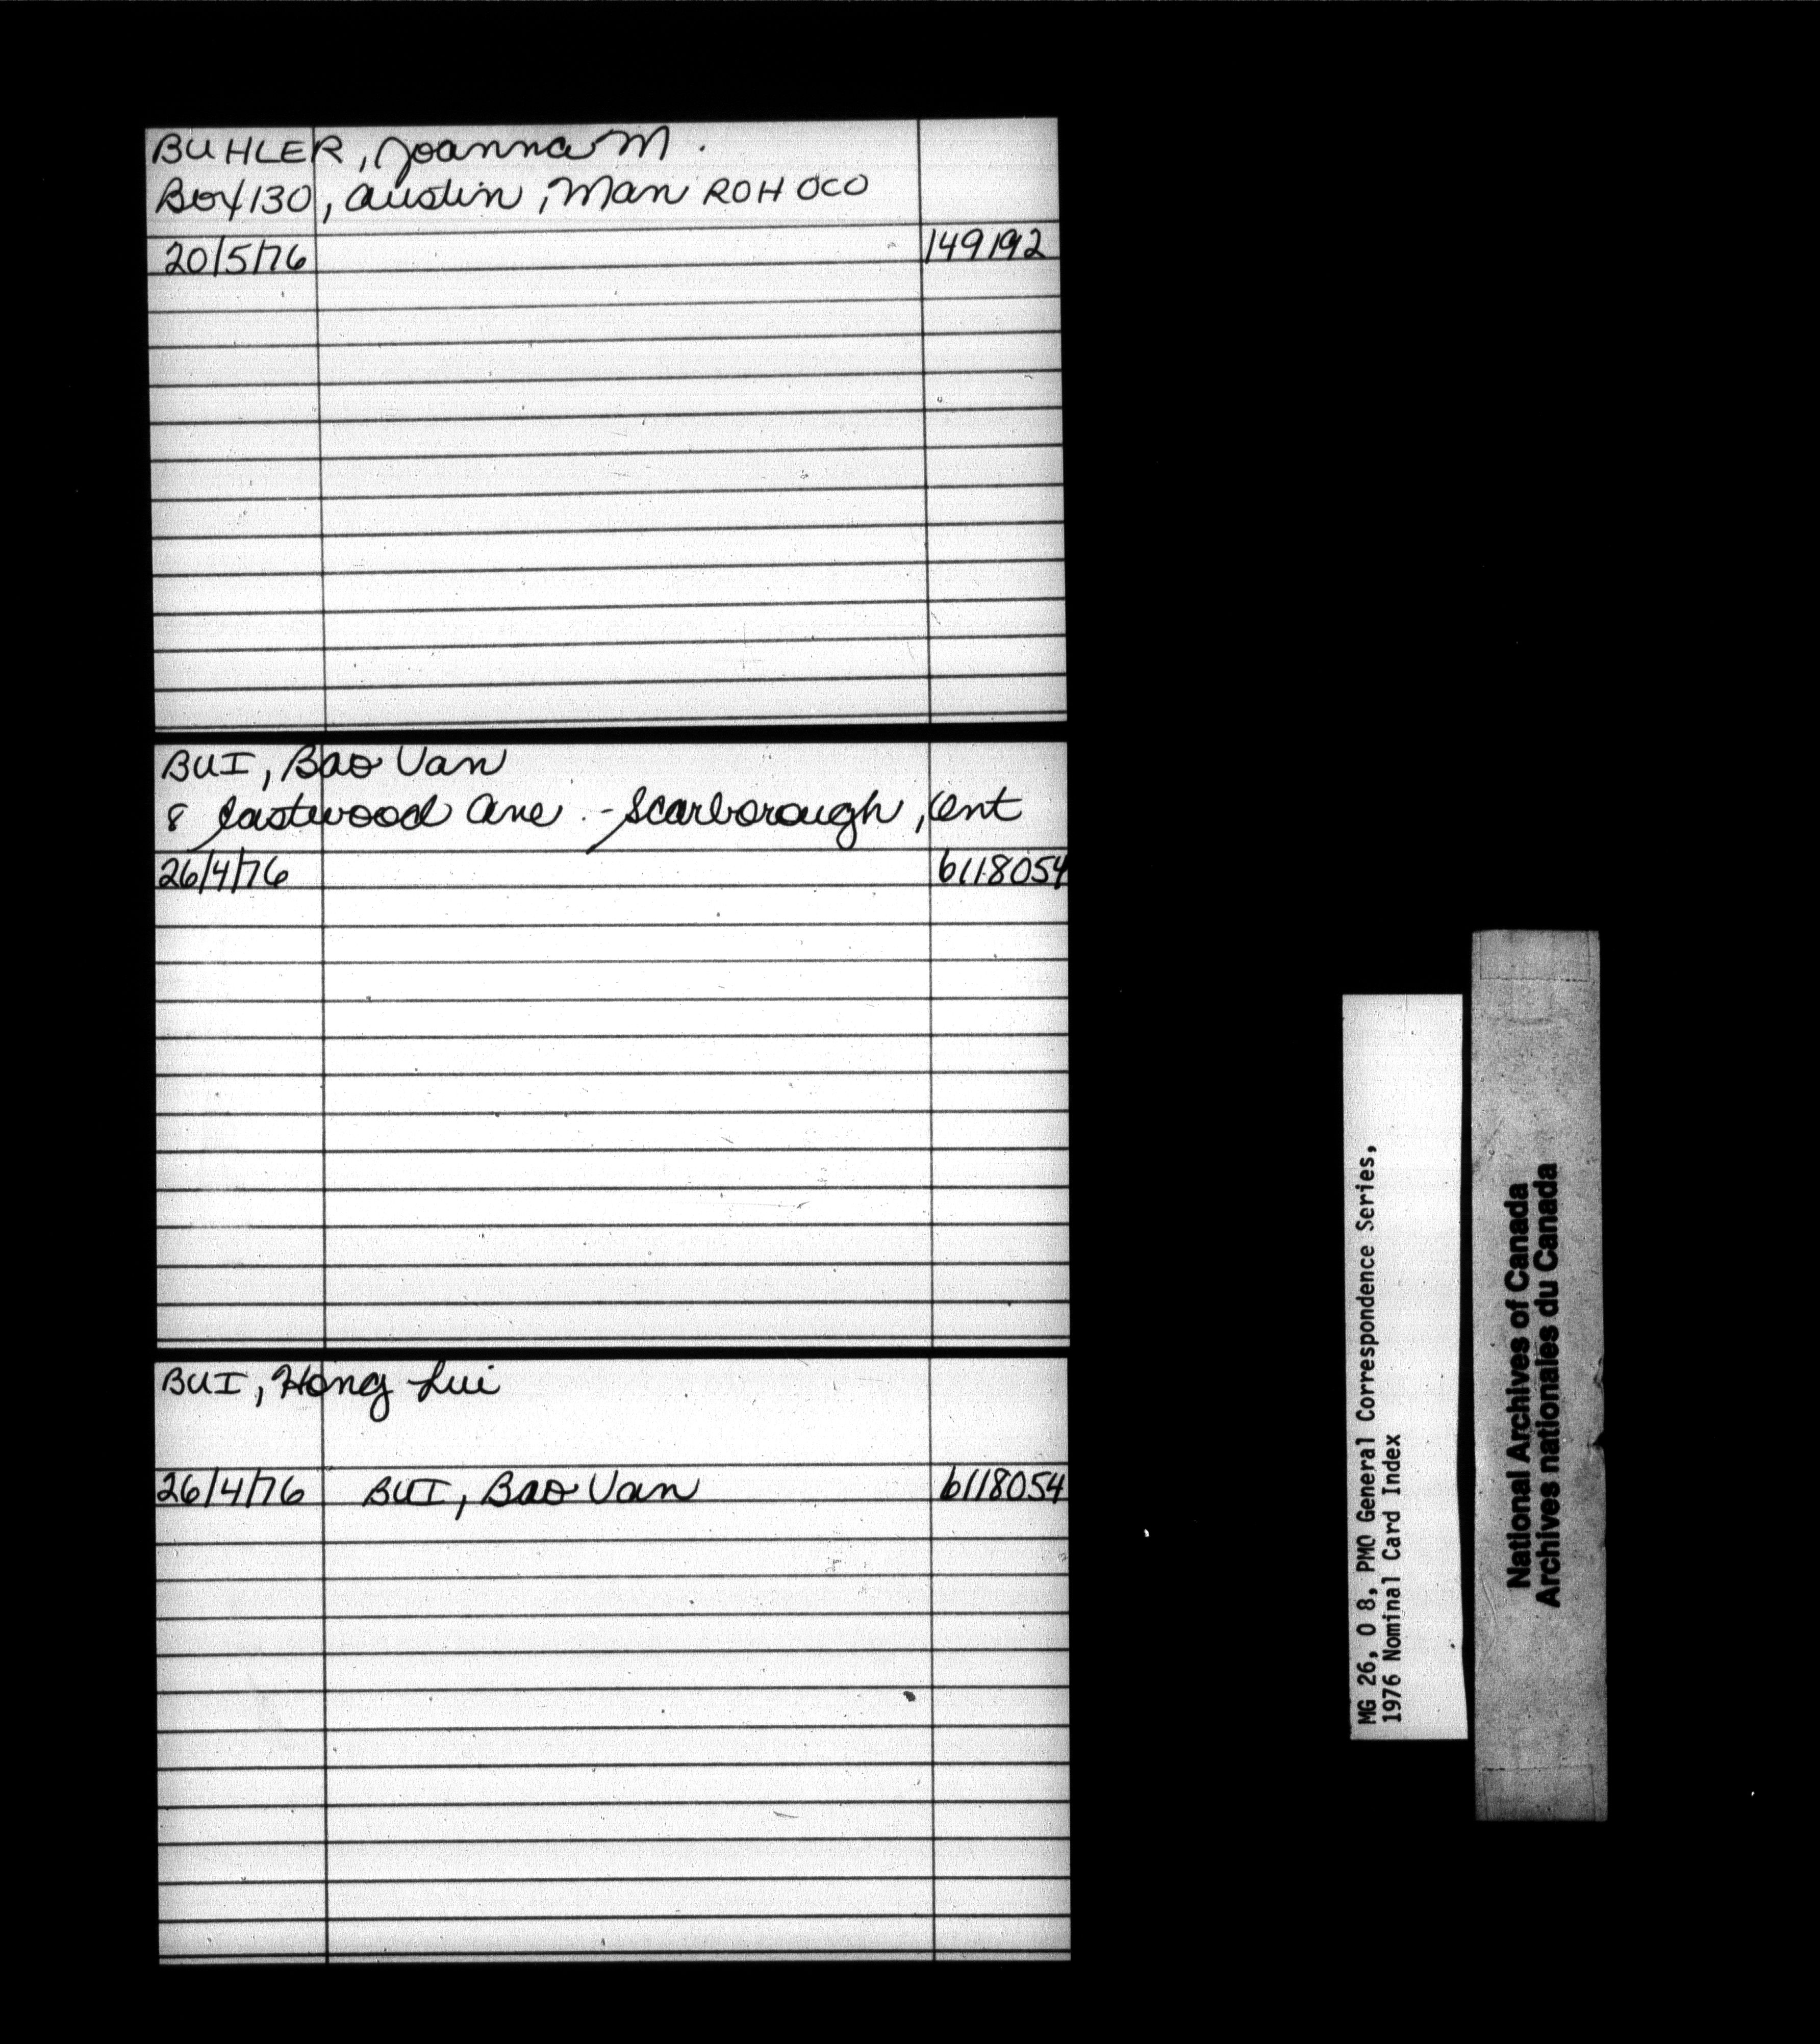 BUHLER, Joanna M.
Box 130, Austin, Man ROH OCO
20/5/76 149192
BUI, Bao Van
8 Eastwood Ave. - Scarborough, Ont
26/4/76 6118054
BUI, Hong Lui
26/4/76 BUI, Bao Van 6118054
MG 26, O 8, PMO General Correspondence Series,
1976 Nominal Card Index
National Archives of Canada
Archives nationales du Canada